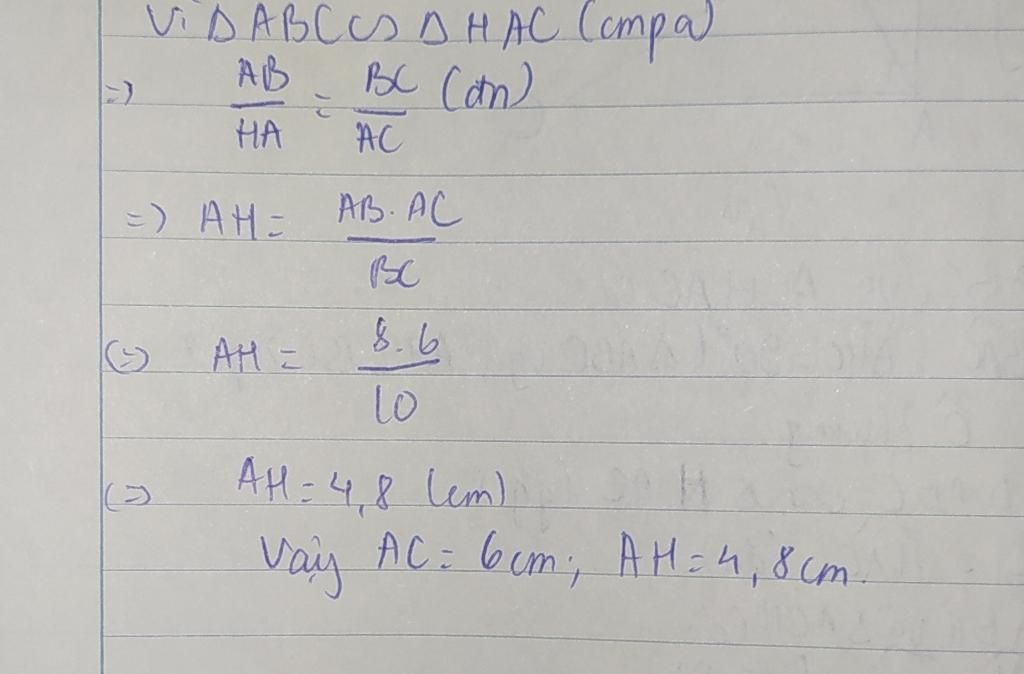 Vì Δ ABC ∽ Δ HAC (cmpa)
=) AB/HA = BC/AC (đn)
=) AH = AB.AC/BC
(=) AH = 8.6/10
(=) AH = 4,8 (cm)
Vậy AC = 6cm; AH = 4,8cm.